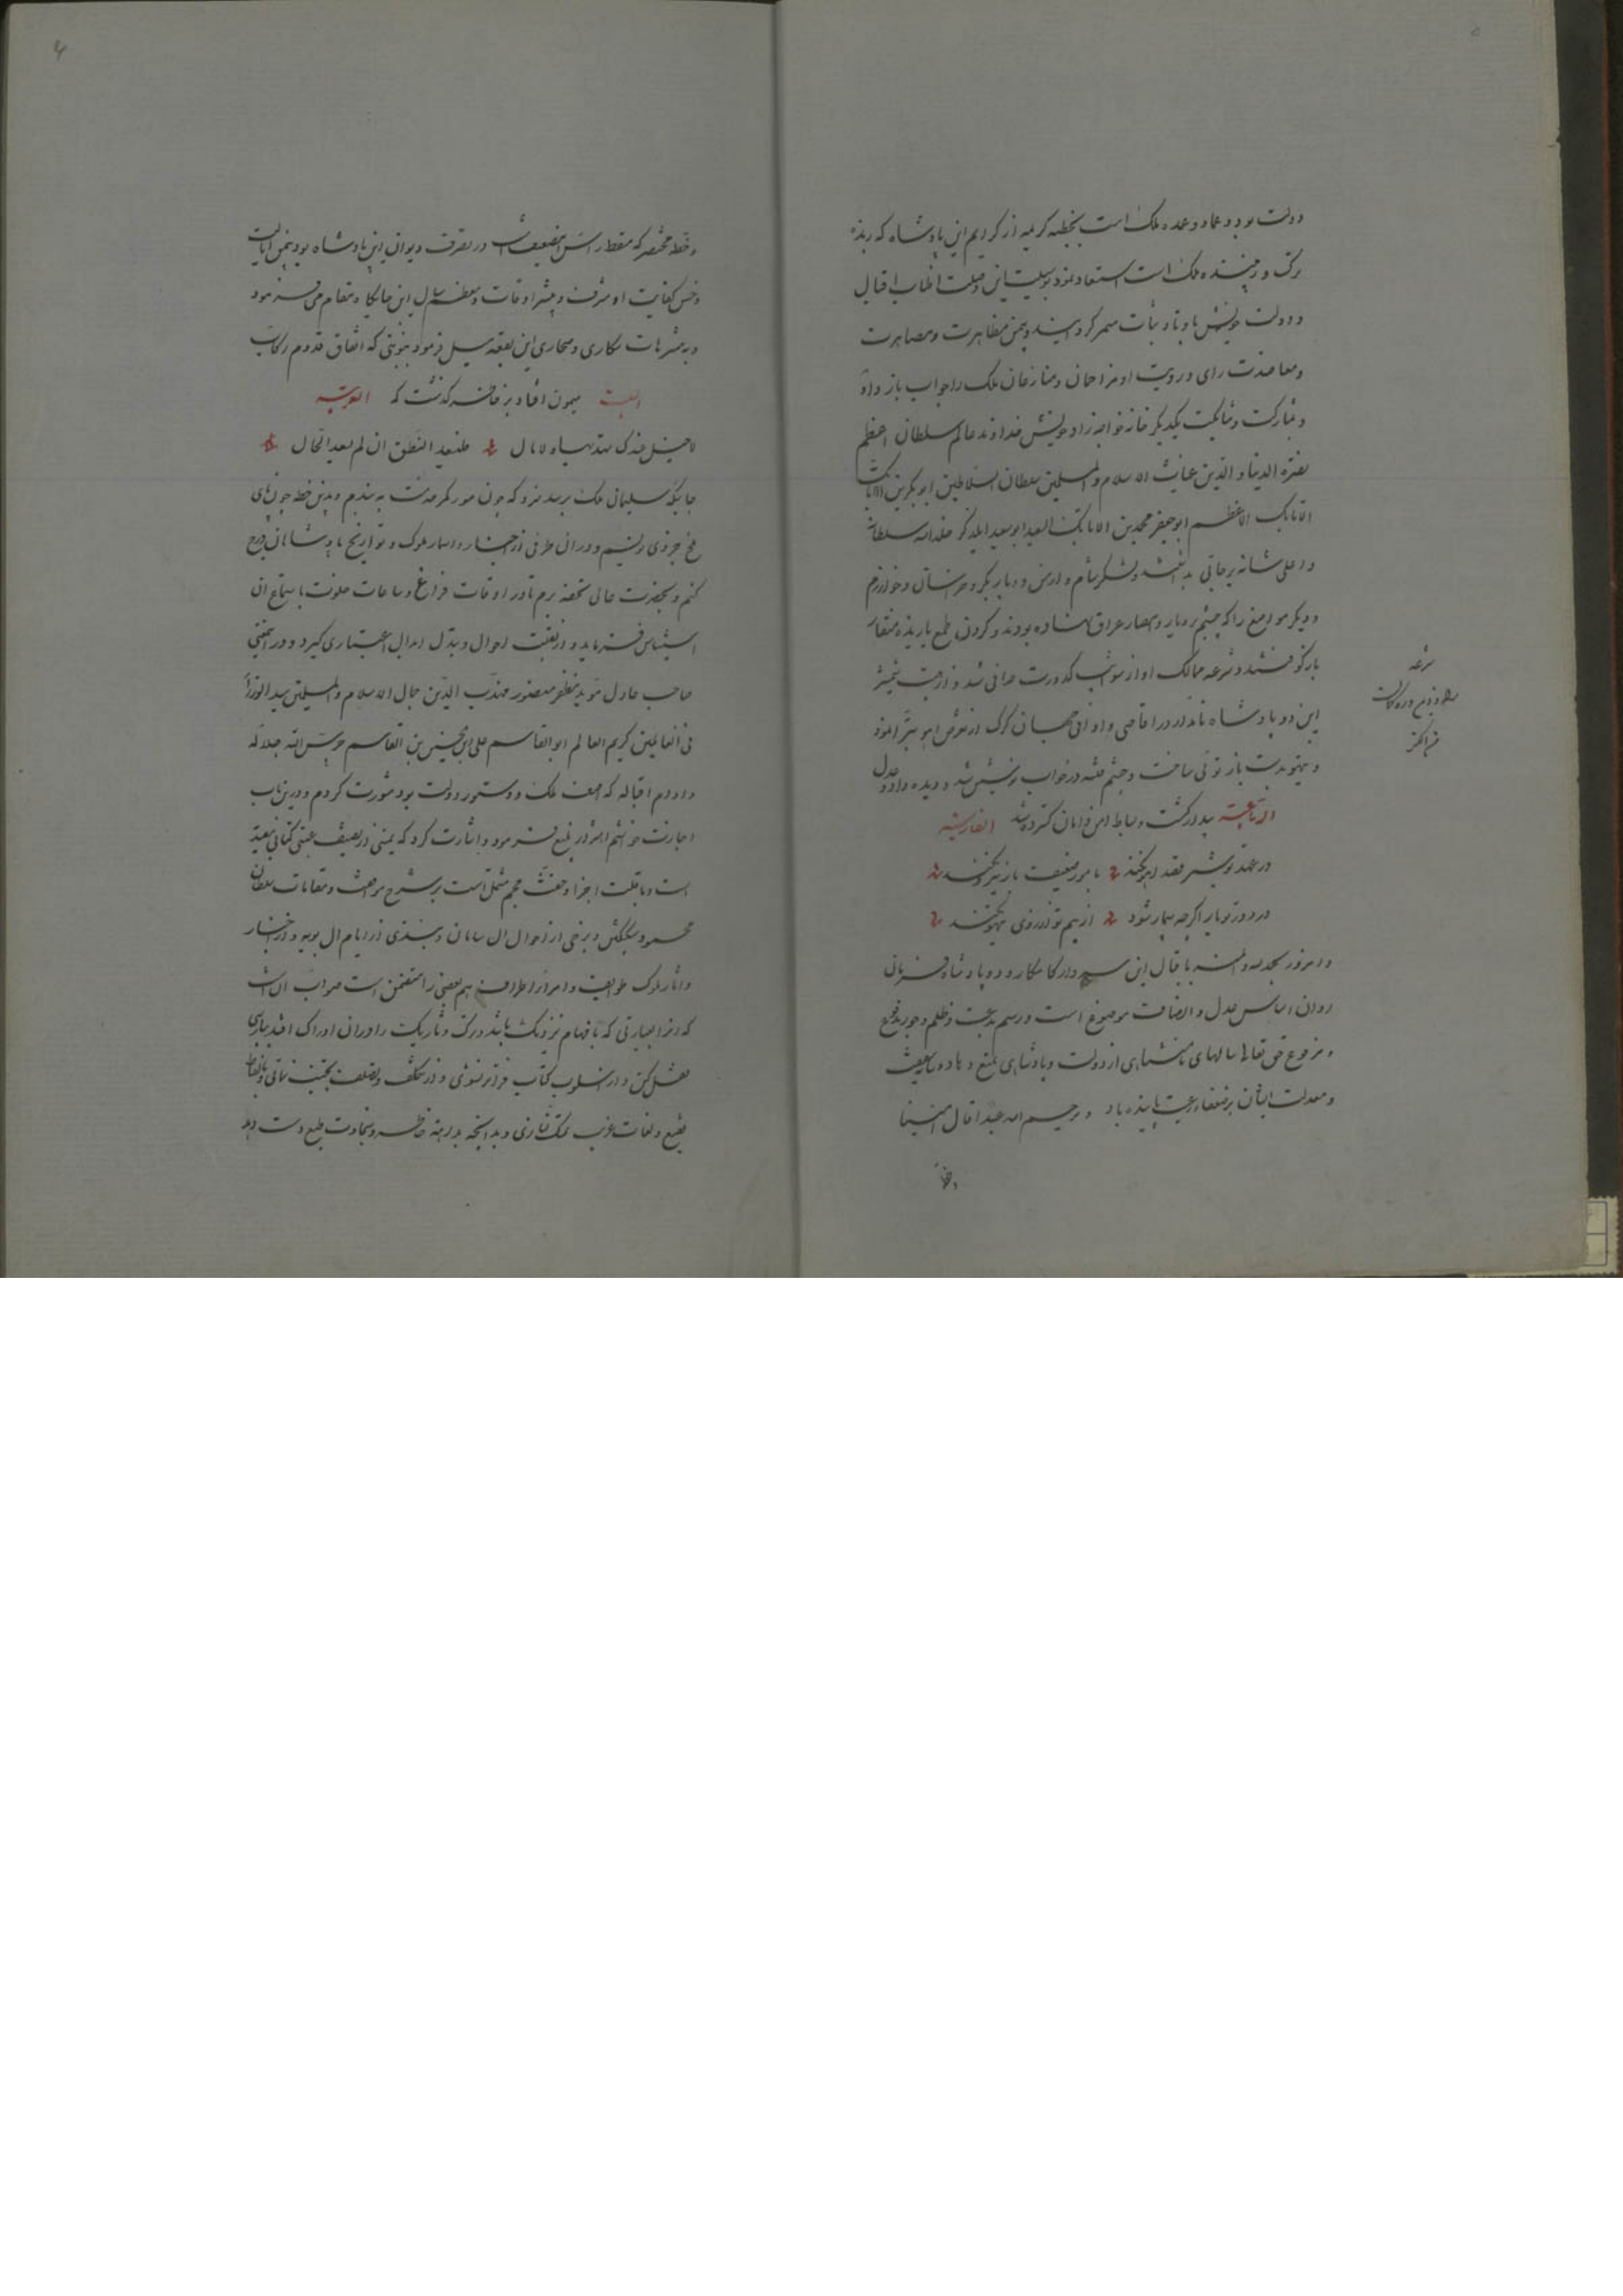 دولت بود و عماد و عمده ملک است بخطبه کریمه از کرایم این پادشاه که
بزرگ و ملک است استعاد نمود
و دولت خویش باوتاد ثبات کردانید و بیمن مظاهرت و مصاهرت
و معاضدت رای و رویت او مزاحمان و منازعان ملک را جواب باز داد
و بمشارکت و مشایکت یکدیکر خانه خواجه زاد خویش خداوند عالم سلطان اعظم
نصرة الدنیا و الدین غیاث الاسلام و المسلمین سلطان السلاطین ابوبکر بن الاتابک
الاتابک الاعظم ابوجعفر محمد بن الاتابک السعید ابوسعید ایلدکز خلد الله سلطانه
و اعلی شانه برجای بداشتند و لشکر شام و ارمن و دیار بکر و خراسان و خوارزم
و دیکر مواضع را که چشم بر دیار و امصار عراق نهاده بودند و کردن طمع یازیده منقار
باز کوفتند و شرعه ممالک او از شوائب کدورت صافی شد و از هیبت شمشیر
این دو پادشاه نامدار در اقاصی و ادانی جهان کرک از تعرض آهو تبرا نمود
و تیهو بدست باز تولی ساخت و چشم فتنه در خواب نوشین شد و دیده داد و عدل
الرباعیة بیدار کشت و بساط امن و امان کسترده شد الفارسیه
در عهد تو شیر قصد آهو نکند با مور ضعیف باز نیرو نکند
در دور تو یار اکرچه بیمار شود از بیم تو آرزوی تیهو نکند
و امروز بحمد الله و المنه باقبال این سپهدار کامکار و دو پادشاه فرمان
روان اساس عدل و انصاف موضوع است و رسم بدعت و ظلم و جور مدفوع
و مرفوع حق تعالی سالهای نامتناهی از دولت و پادشاهی ممتع داراد و سایه
و معدلت ایشان بر ضعفاء رعیت پاینده باد و یرحم الله عبدا قال آمینا
شرعه
و خطه مختصر که مسقط راس این ضعیف است در تصرف دیوان این پادشاه بود بیمن ایالت
و حسن کفایت او مشرف و بیشتر اوقات و معظم سال این جایکاه مقام می فرمود
و به متنزهات مکاری و صحاری این بقعه میل فرمود بنوبتی که اتفاق قدوم رکاب
البیت میمون افتاد بر خاطر کذشت که العربیه
لا خیل عندک تهدیها و لا مال فلیسعد النطق ان لم یسعد الحال
جایکه سلیمانی ملک برسد سزد که چون مور کمر خدمت به بندم و بدین خطه چون پای
ملخ جزوی نویسم و در آن طرفی از اخبار و اسمار ملوک و تواریخ پادشاهان درج
کنم و بحضرت عالی تحفه برم تا در اوقات فراغ و ساعات خلوت باستماع آن
استیناس فرماید و از تقلب احوال و تبدل ابدال اعتباری کیرد و در این معنی
صاحب عادل مؤید مظفر منصور مهذب الدین جمال الاسلام و المسلمین سید الوزراء
فی العالمین کریم العالم ابوالقاسم علی بن الحسین بن القاسم حرس الله جلاله
و ادام اقباله که آصف ملک و دستور دولت بود مشورت کردم و درین باب
اجازت خواستم اهتزاز بلیغ فرمود و اشارت کرد که یمینی از تصنیف عتبی کتابی مفید
است و با قلت اجزا و خفت حجم مشتمل است بر شرح مواقف و مقامات سلطان
محمود سبکتکین و برخی از احوال آل سامان و نبذی از ایام آل بویه و از اخبار
و آثار ملوک طوایف و امراء اطراف هم بعضی را متضمن است صواب آن است
که آنرا بعبارتی که بافهام نزدیک باشد و ترک و تازیک را در آن ادراک افتد بپارسی
نقل کن و از اسلوب کتاب فراتر نشوی و از تکلف و تصلف تجنب نمائی و بالفاظ
بشیع و لغات غریب تمسک نسازی و بدانچه بداهه خاطر و سخاوت طبع دست دهد